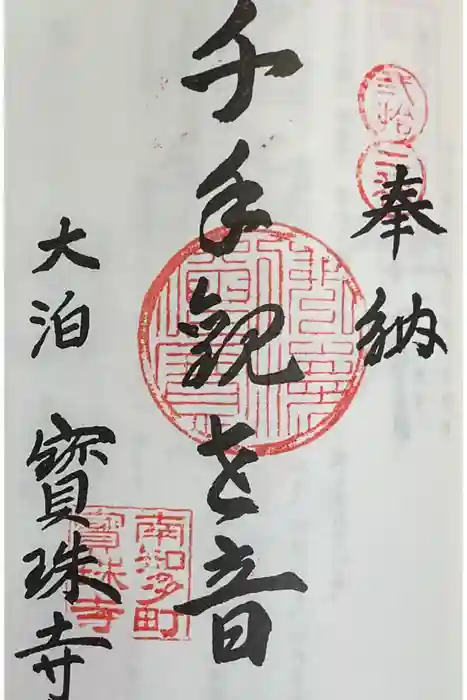 奉納
千手観世音
大泊
寳珠寺
南知多町
寳珠寺